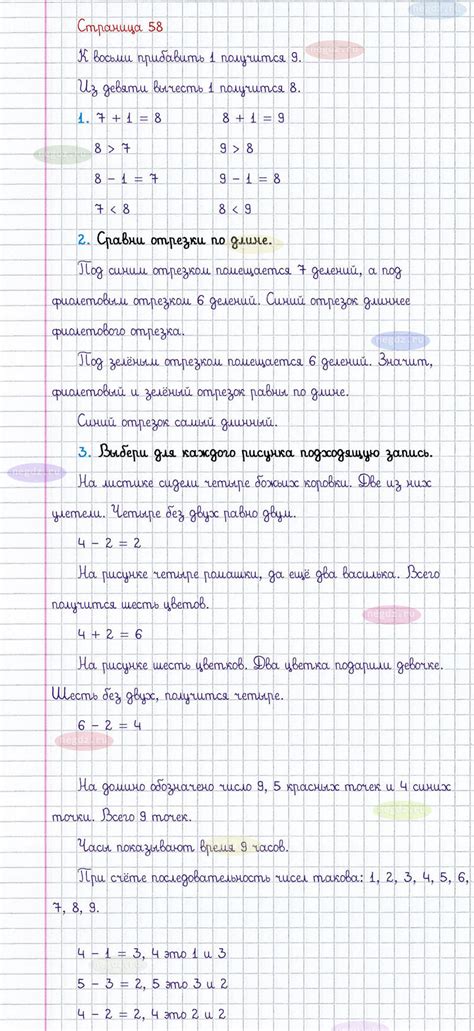 Страница 58
К восьми прибавить 1 получится 9.
Из девяти вычесть 1 получится 8.
1. 7 + 1 = 8 8 + 1 = 9
8 > 7 9 > 8
8 - 1 = 7 9 - 1 = 8
7 < 8 8 < 9
2. Сравни отрезки по длине.
Под синим отрезком помещается 7 делений, а под
фиолетовым отрезком 6 делений. Синий отрезок длиннее
фиолетового отрезка.
negdz.ru
Под зелёным отрезком помещается 6 делений. Значит,
фиолетовый и зелёный отрезок равны по длине.
Синий отрезок самый длинный.
3. Выбери для каждого рисунка подходящую запись.
negdz.ru
На листике сидели четыре божьих коровки. Две из них
улетели. Четыре без двух равно двум.
4 - 2 = 2
На рисунке четыре ромашки, да ещё два василька. Всего
получится шесть цветов.
negdz.ru
4 + 2 = 6
На рисунке шесть цветков. Два цветка подарили девочке.
Шесть без двух, получится четыре.
6 - 2 = 4
negdz.ru
На домино обозначено число 9, 5 красных точек и 4 синих
точки. Всего 9 точек.
Часы показывают время 9 часов.
При счёте последовательность чисел такова: 1, 2, 3, 4, 5, 6,
7, 8, 9.
4 - 1 = 3, 4 это 1 и 3
5 - 3 = 2, 5 это 3 и 2
4 - 2 = 2, 4 это 2 и 2